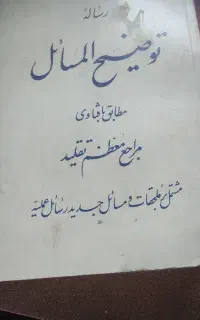 رساله
توضیح المسائل
مطابق با فتاوی
مراجع معظم تقلید
مشتمل بر ملحقات و مسائل جدید رسائل عملیه